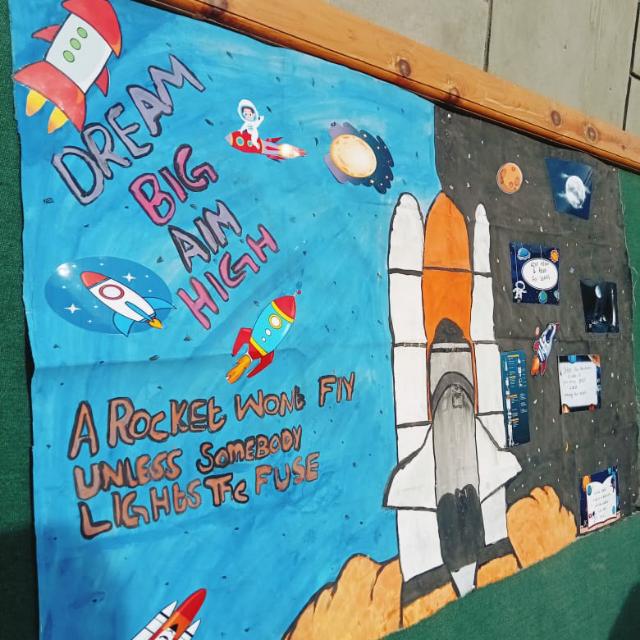 DREAM
BIG
AIM
HIGH
A ROCKET WONt FlY
UNLESS SOMEBODY
LIGHtS THe FUSE